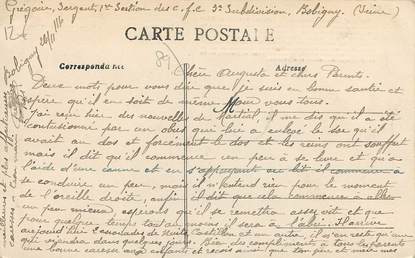 Grégoire, Sergent, 1re Section des C.F.C 3e Subdivision, Bobigny (Seine)
CARTE POSTALE
Correspondance
Adresse
Bobigny
Chère Augusta et chers Parents.
Deux mots pour vous dire que je suis en bonne santé et
espère qu'il en soit de même pour vous tous.
J'ai reçu hier des nouvelles de Martial, il me dit qu'il a été
contusionné par un obus que lui a enlevé le sac qu'il
avait au dos et forcément le dos et les reins ont souffert
mais il dit qu'il commence un peu à se lever et qu'à
l'aide d'une canne et en s'appuyant au lit il commence à
se conduire un peu, mais il n'entend rien pour le moment
de l'oreille droite, enfin il dit que cela commence à aller
un peu mieux, espérons qu'il se remettra assez vite et que
pour quelque temps tout au moins il sera à l'abri. Il arrive
aujourd'hui Castillon et un autre, il n'en reste qu'un
qui viendra dans quelques jours. Bien des compliments à tous les parents
une bonne caresse aux enfants et reçois ainsi que ton père et mère mes